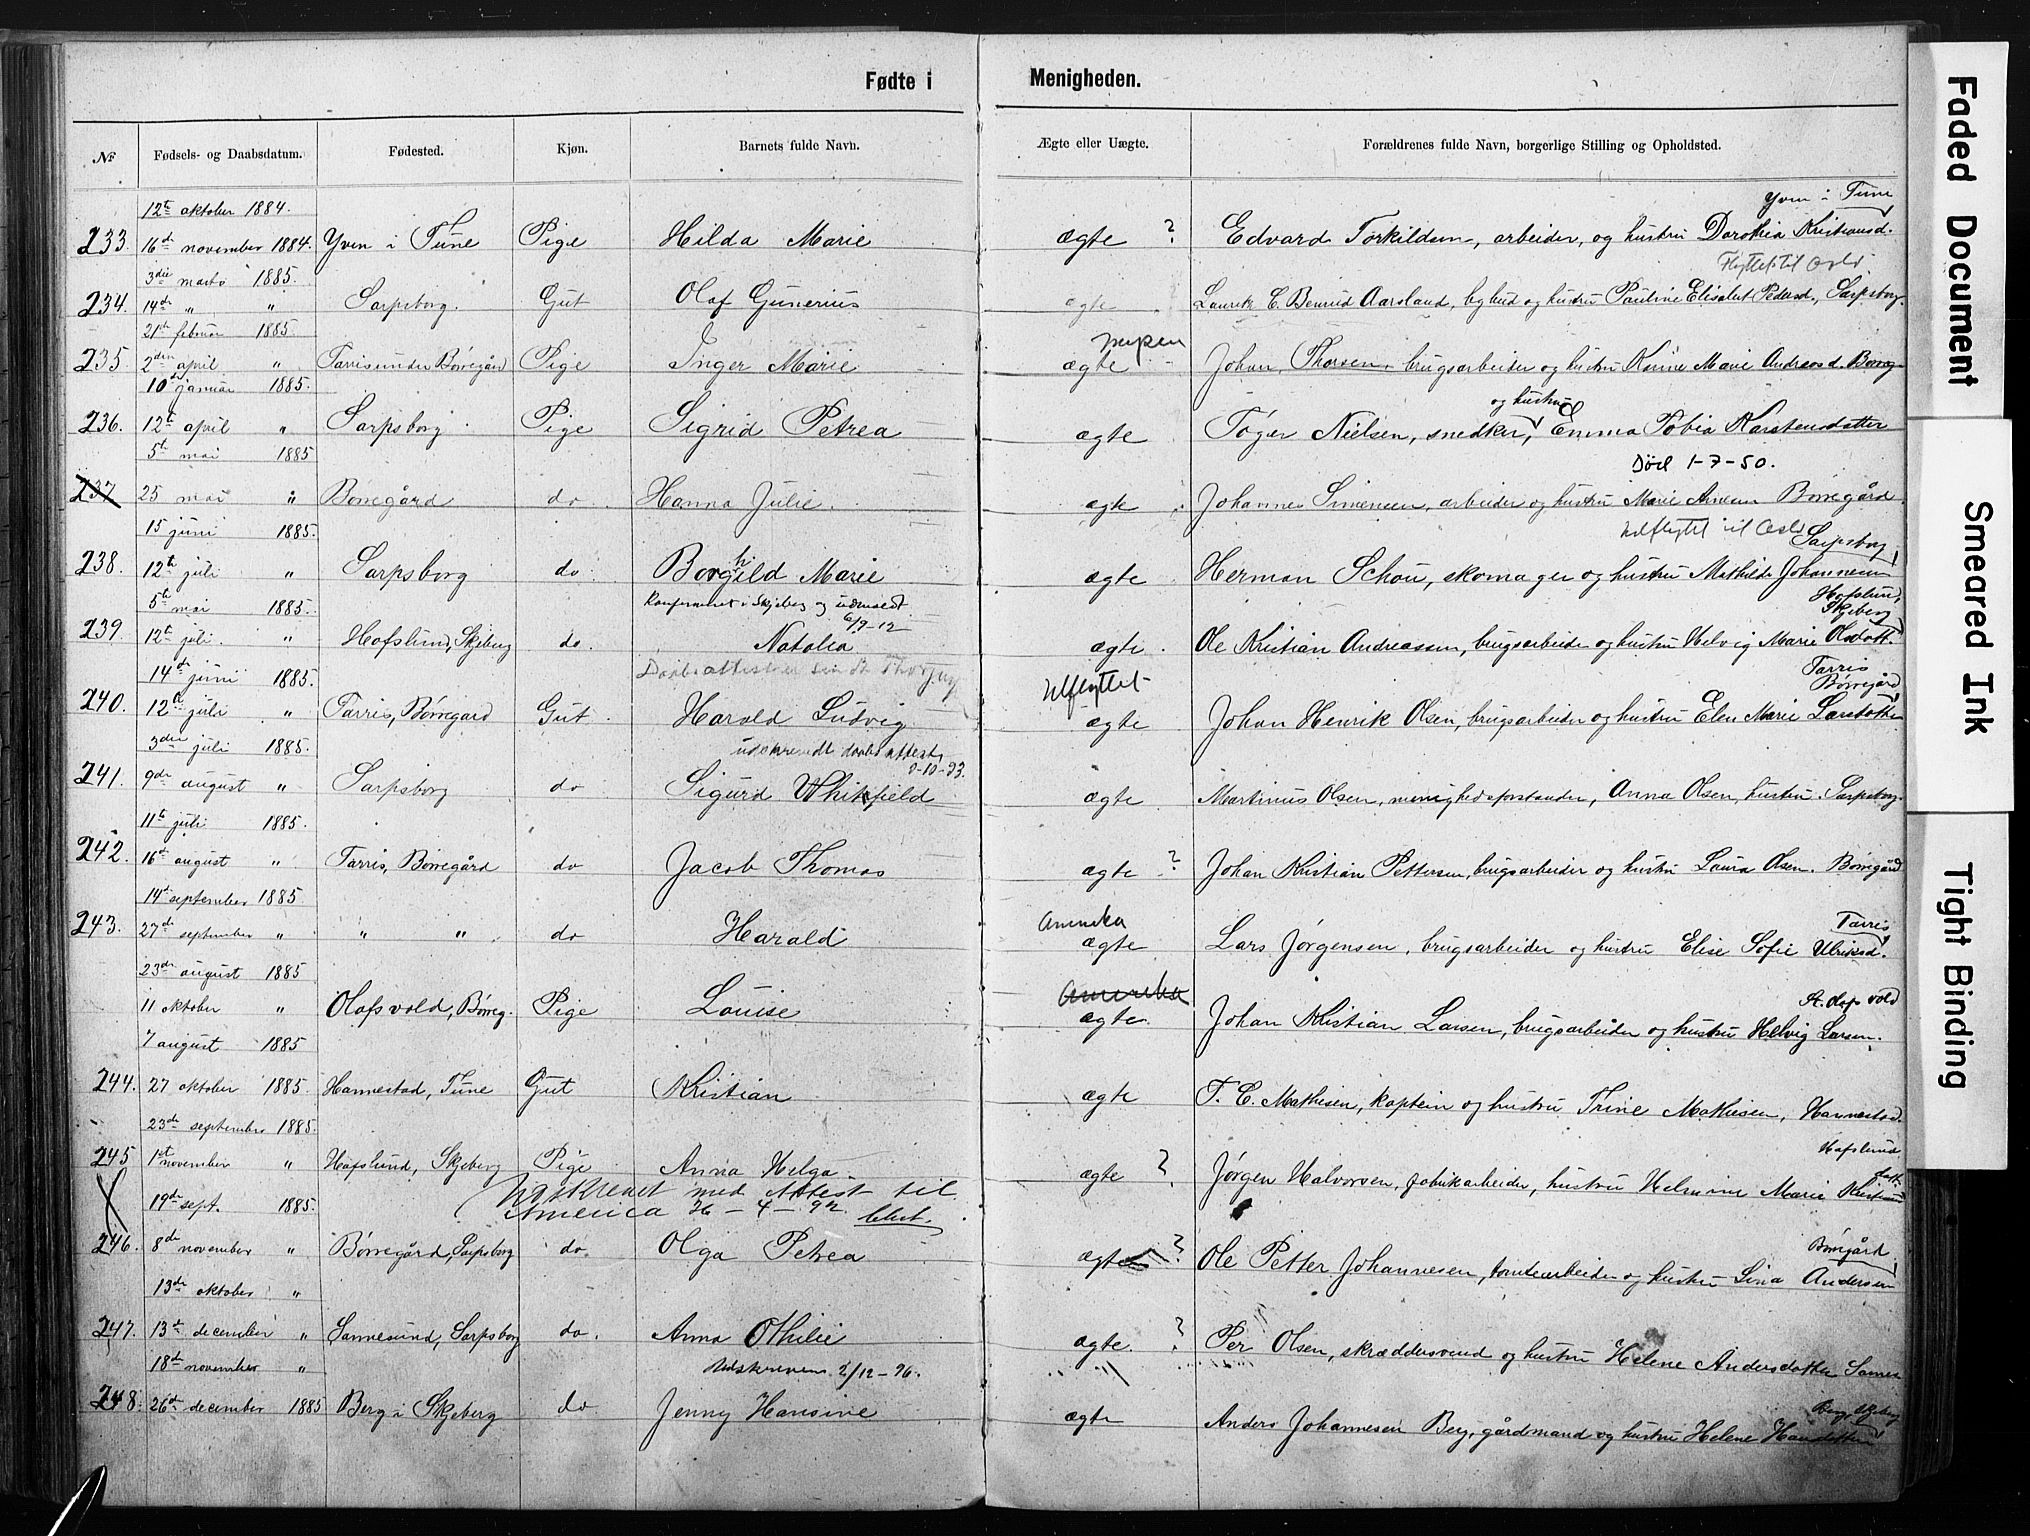 Fødte i Menigheden.
№ Fødsels- og Daabsdatum. Fødested. Kjøn. Barnets fulde Navn. Ægte eller Uægte. Forældrenes fulde Navn, borgerlige Stilling og Opholdsted.
12te oktober 1884. Yven i Tune
233. 16de november 1884. Yven i Tune Pige Hilda Marie ægte ? Edvard Torkildsen, arbeider, og hustru Dorothea Kristiansd.
3die marts 1885. Flyttet til Oslo.
234. 14de " " Sarpsborg. Gut Olaf Gunerius ægte Aarsland, bybud og hustru Pauline Elisabet Pedersd., Sarpsborg.
21de februar 1885.
235. 2den april " Tarris under Børregård Pige Inger Marie ægte Johan Thorsen, brugsarbeider og hustru Karine Marie Andreasd. Børreg
10de januar 1885. og hustru
236. 12te april " Sarpsborg Pige Sigrid Petrea ægte Tøger Nielsen, snedker, Emma Tobia Karstensdatter
5te mai 1885 Død 1-7-50.
237 25 mai " Børregård do Hanna Julie. ægte Johannes Simensen, arbeider og hustru Marie Børregård
15 juni 1885. Udflyttet til Oslo Sarpsborg
238. 12te juli " Sarpsborg do Borghild Marie ægte Herman Schou, skomager og hustru Mathilde Johannesen
5te mai 1885. Konfirmeret i Skjeberg og udmeldt 6/9-12 Hafslund, Skjeberg
239. 12te juli. " Hafslund, Skjeberg do. Natalia ægte. Ole Kristian Andreassen, brugsarbeider og hustru Helvig Marie Olsdatt.
14de juni 1885. Daabsattest Udflyttet Tarris Børregård
240. 12te juli " Tarris, Børregård Gut. Harald Ludvig ægte Johan Henrik Olsen, brugsarbeider og hustru Elen Marie Larsdatter
3die juli 1885. daabsattest 9-10-93.
241. 9de august " Sarpsborg do Sigurd Whitfield ægte Martinus Olsen, menighedsforstander, Anna Olsen, hustru. Sarpsborg.
11te juli 1885.
242. 16de august " Tarris, Børregård do Jacob Thomas ægte ? Johan Kristian Pettersen, brugsarbeider og hustru Laura Olsen. Børregård
14de september 1885 Amerika Tarris
243. 27de september " " " do Harald ægte Lars Jørgensen, brugsarbeider og hustru Elise Sofie Ulriksd.
23de august 1885 Amerika
11 oktober " Olafsvold, Børreg. Pige Louise ægte. Johan Kristian Larsen, brugsarbeider og hustru Helvig Larsen.
7 august 1885
244. 27 oktober 1885. Hannestad, Tune Gut Kristian ægte T. C. Mathisen, kaptein og hustru Trine Mathiesen, Hannestad.
23de september 1885. Hafslund
245 1st november " Hafslund, Skjeberg Pige Anna Helga. ægte ? Jørgen Halvorsen, fabrikarbeider, hustru Helmine Marie
19de sept. 1885. Udskrevet med Attest til America 26-4-92.
246. 8de november " Børregård, Sarpsborg do. Olga Petrea ægte ? Ole Petter Johannesen, tomtearbeider og hustru Lina Andersen Børregård
13de oktober "
247. 13de december " Sannesund, Sarpsborg do. Anna Othilie ægte. ? Per Olsen, skræddersvend og hustru Helene Andersdatter Sannes
18de november " Udskreven 2/12-96.
248. 26de december 1885 Berg i Skjeberg do Jenny Hansine ægte Anders Johannesen Berg, gårdmand og hustru Helene Hansdatter Berg, Skjeberg
Faded Document
Smeared Ink
Tight Binding